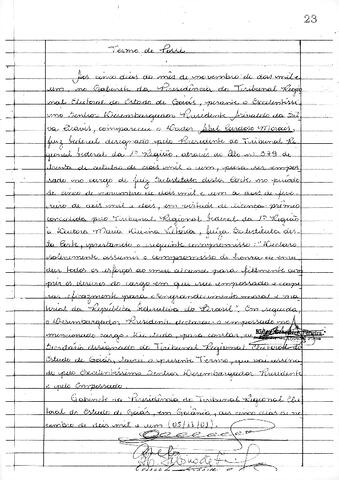 23
Termo de Posse
Aos cinco dias do mês de novembro de dois mil e
um, no Gabinete da Presidência do Tribunal Regio
nal Eleitoral do Estado de Goiás, perante o Excelentíssi
mo Senhor Desembargador Presidente
compareceu o Doutor Abel Cardoso Morais,
juiz federal designado pelo Presidente do Tribunal Re
gional Federal da 1ª Região, através do Ato nº 579 de
trinta de outubro de dois mil e um, para ser empos
sado no cargo de Juiz Substituto desta Corte no período
de cinco de novembro de dois mil e um a dois de feve
reiro de dois mil e dois, em virtude de licença prêmio
concedida pelo Tribunal Regional Federal da 1ª Região
à Doutora Maria, Juíza Substituta des
ta Corte, prestando o seguinte compromisso: "Declaro
solenemente assumir o compromisso de honra de envi
dar todos os esforços ao meu alcance para fielmente cum
prir os deveres do cargo em que sou empossado e coope
rar eficazmente para o engrandecimento moral e ma
terial da República Federativa do Brasil". Em seguida,
o Desembargador Presidente declarou-o empossado no
mencionado cargo. Eu, para constar,
Secretário designado do Tribunal Regional Eleitoral do
Estado de Goiás, lavrei o presente Termo, que vai assina
do pelo Excelentíssimo Senhor Desembargador Presidente
e pelo Empossado.
Gabinete da Presidência do Tribunal Regional Elei
toral do Estado de Goiás, em Goiânia, aos cinco dias de no
vembro de dois mil e um (05/11/01).